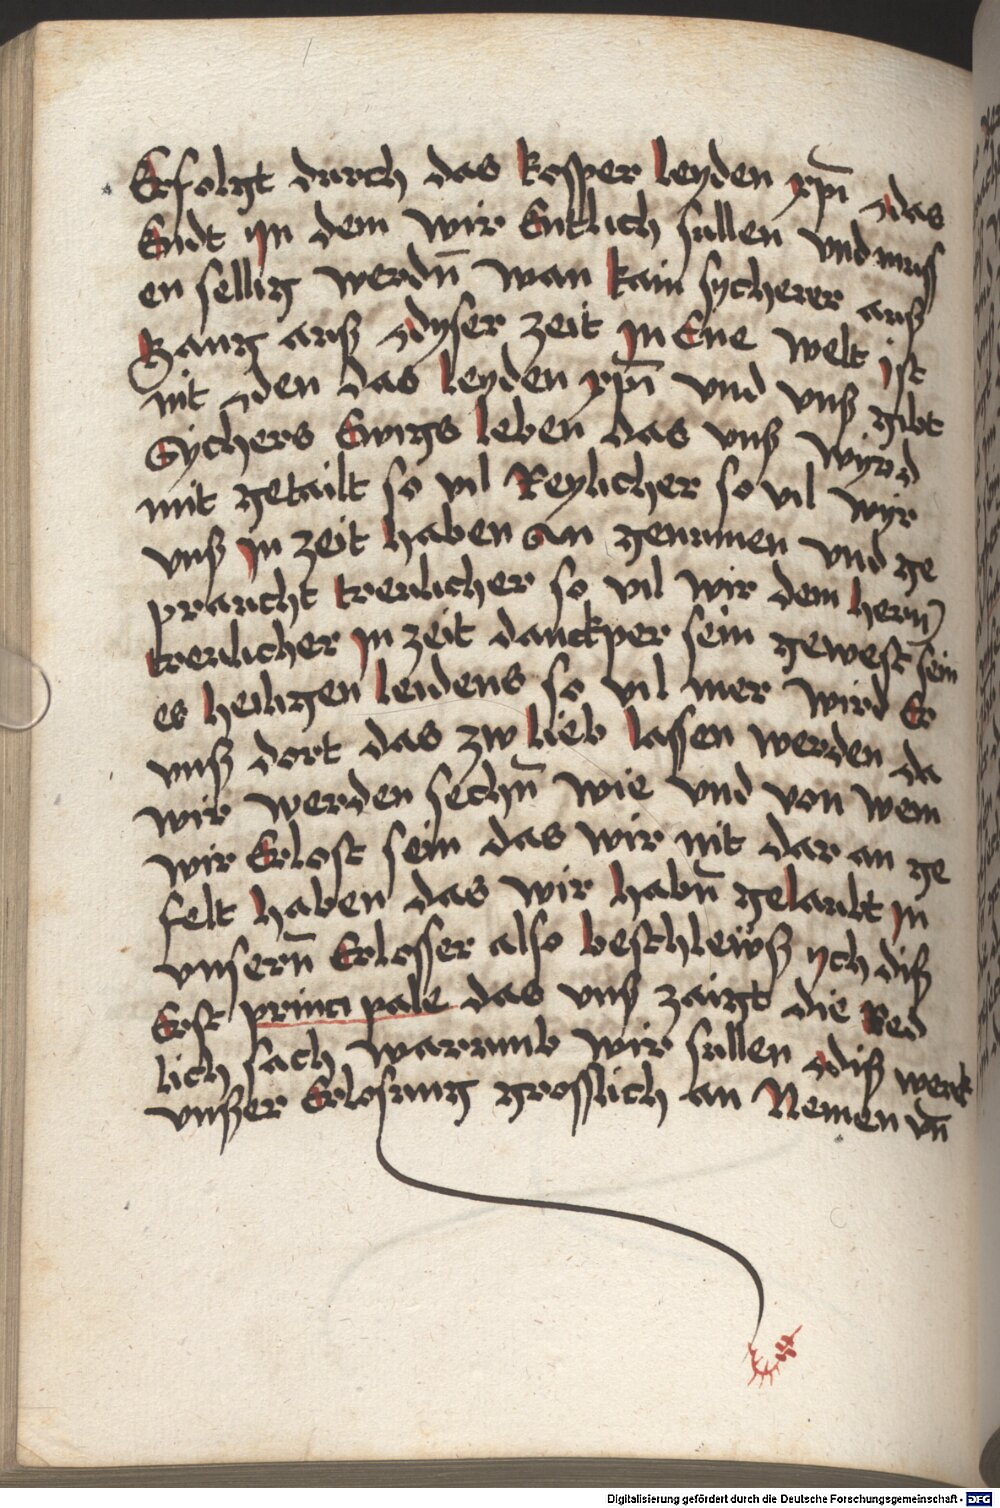 Erfolgt durch das kosper leyden xp̄i das
Endt jn dem wir Entlich sullen vnd muss
en sellig werdn̄ wan kain sycherer auß
gang auß dyser zeit jn Ene welt ist
nit den das leyden xp̄i vnd vnß gibt
Sychers Ewigs leben das vnß wyrd
mit getailt so vil Reylicher so vil wyr
vnß jn zeit haben an genumen vnd ge
praucht treulicher so vil wir dem hern
treulicher jn zeit danckper sein gewest sein
es heiligen leidens so vil mer wird Er
vnß dort das zw lieb lassen werden da
wir werden sechn̄ wie vnd von wem
wir Erlost sein das wir nit dar an ge
felt haben das wir habn̄ gelaubt jn
vnsern̄ Erlosser also beschleuß ych diß
Erst principale das vnß zaigt die Red
lich sach warumb wir sullen diß werk
vnßer Erlosung grosslich an Nemen vn̄
Digitalisierung gefördert durch die Deutsche Forschungsgemeinschaft - DFG